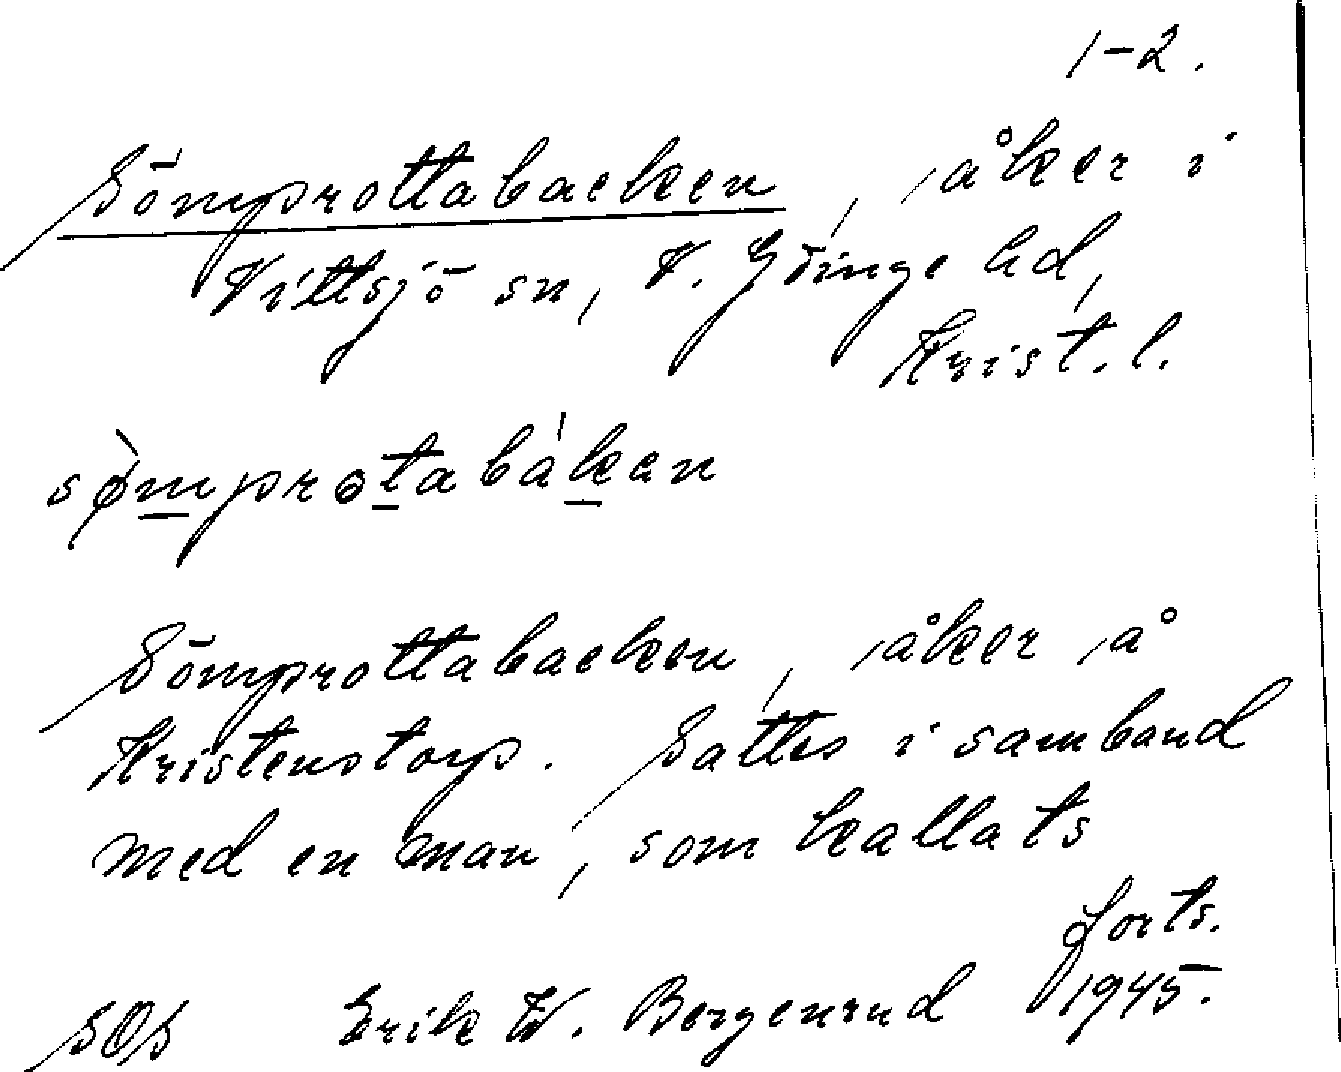 1-2.
Sömprottabacken, åker i
Vittsjö sn, V. Göinge hd,
Krist. l.
sø̀mprotabákan
Sömprottabacken, åker å
Kristenstorp. Sattes i samband
med en man, som kallats
forts.
SOS Erik W. Bergenrud 1945.